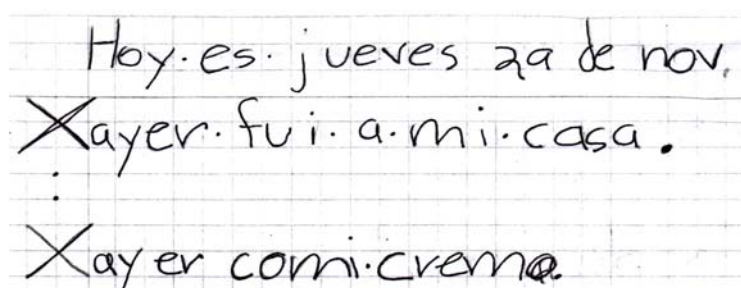 Hoy·es·jueves 29 de nov.
Xayer·fui·a·mi·casa.
:
Xayer comi·crema.